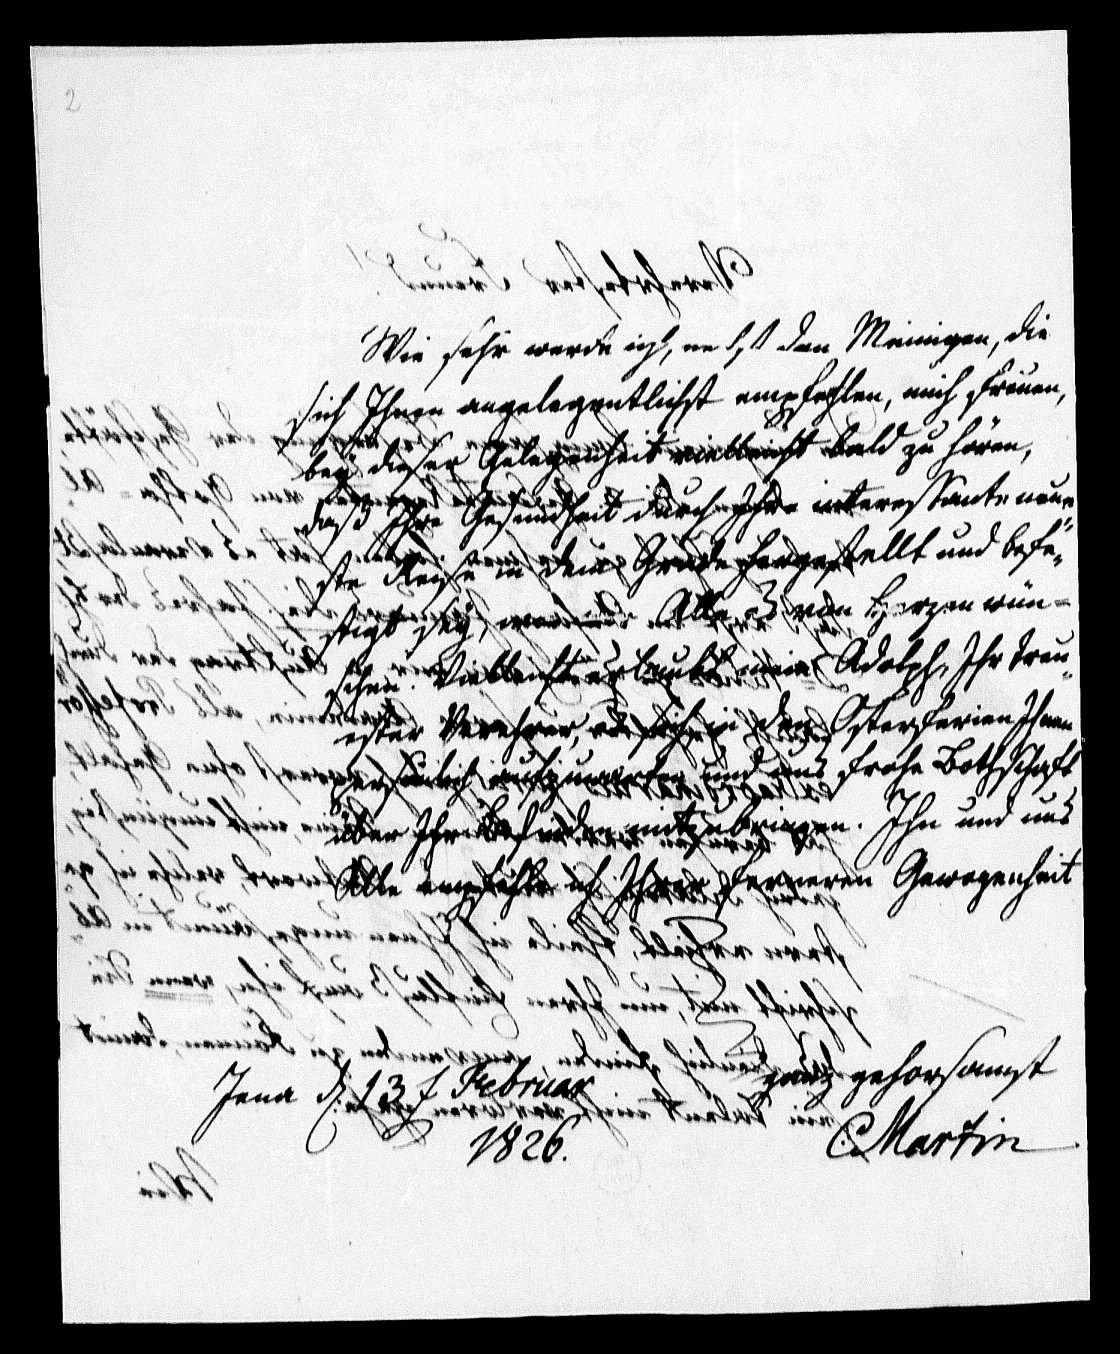 2
Wie sehr werde ich, nebst den Meinigen, die
sich Ihnen angelegentlichst empfehlen, mich freuen,
bey dieser Gelegenheit vielleicht bald zu hören,
daß Ihre Gesundheit durch Ihre interessante neue¬
ste Reise in dem Grade hergestellt und befe¬
stigt sey, wie wir Alle es von Herzen wün¬
schen. Vielleicht erlaubt mein Adolph, Ihr treu¬
ester Verehrer, sich in den Osterferien Ihnen
persönlich aufzuwarten und uns frohe Bothschaft
über Ihr Befinden mitzubringen. Ihn und uns
Alle empfehle ich Ihrer ferneren Gewogenheit
ganz gehorsamst
Jena d. 13 t. Februar
1826.
C. Martin